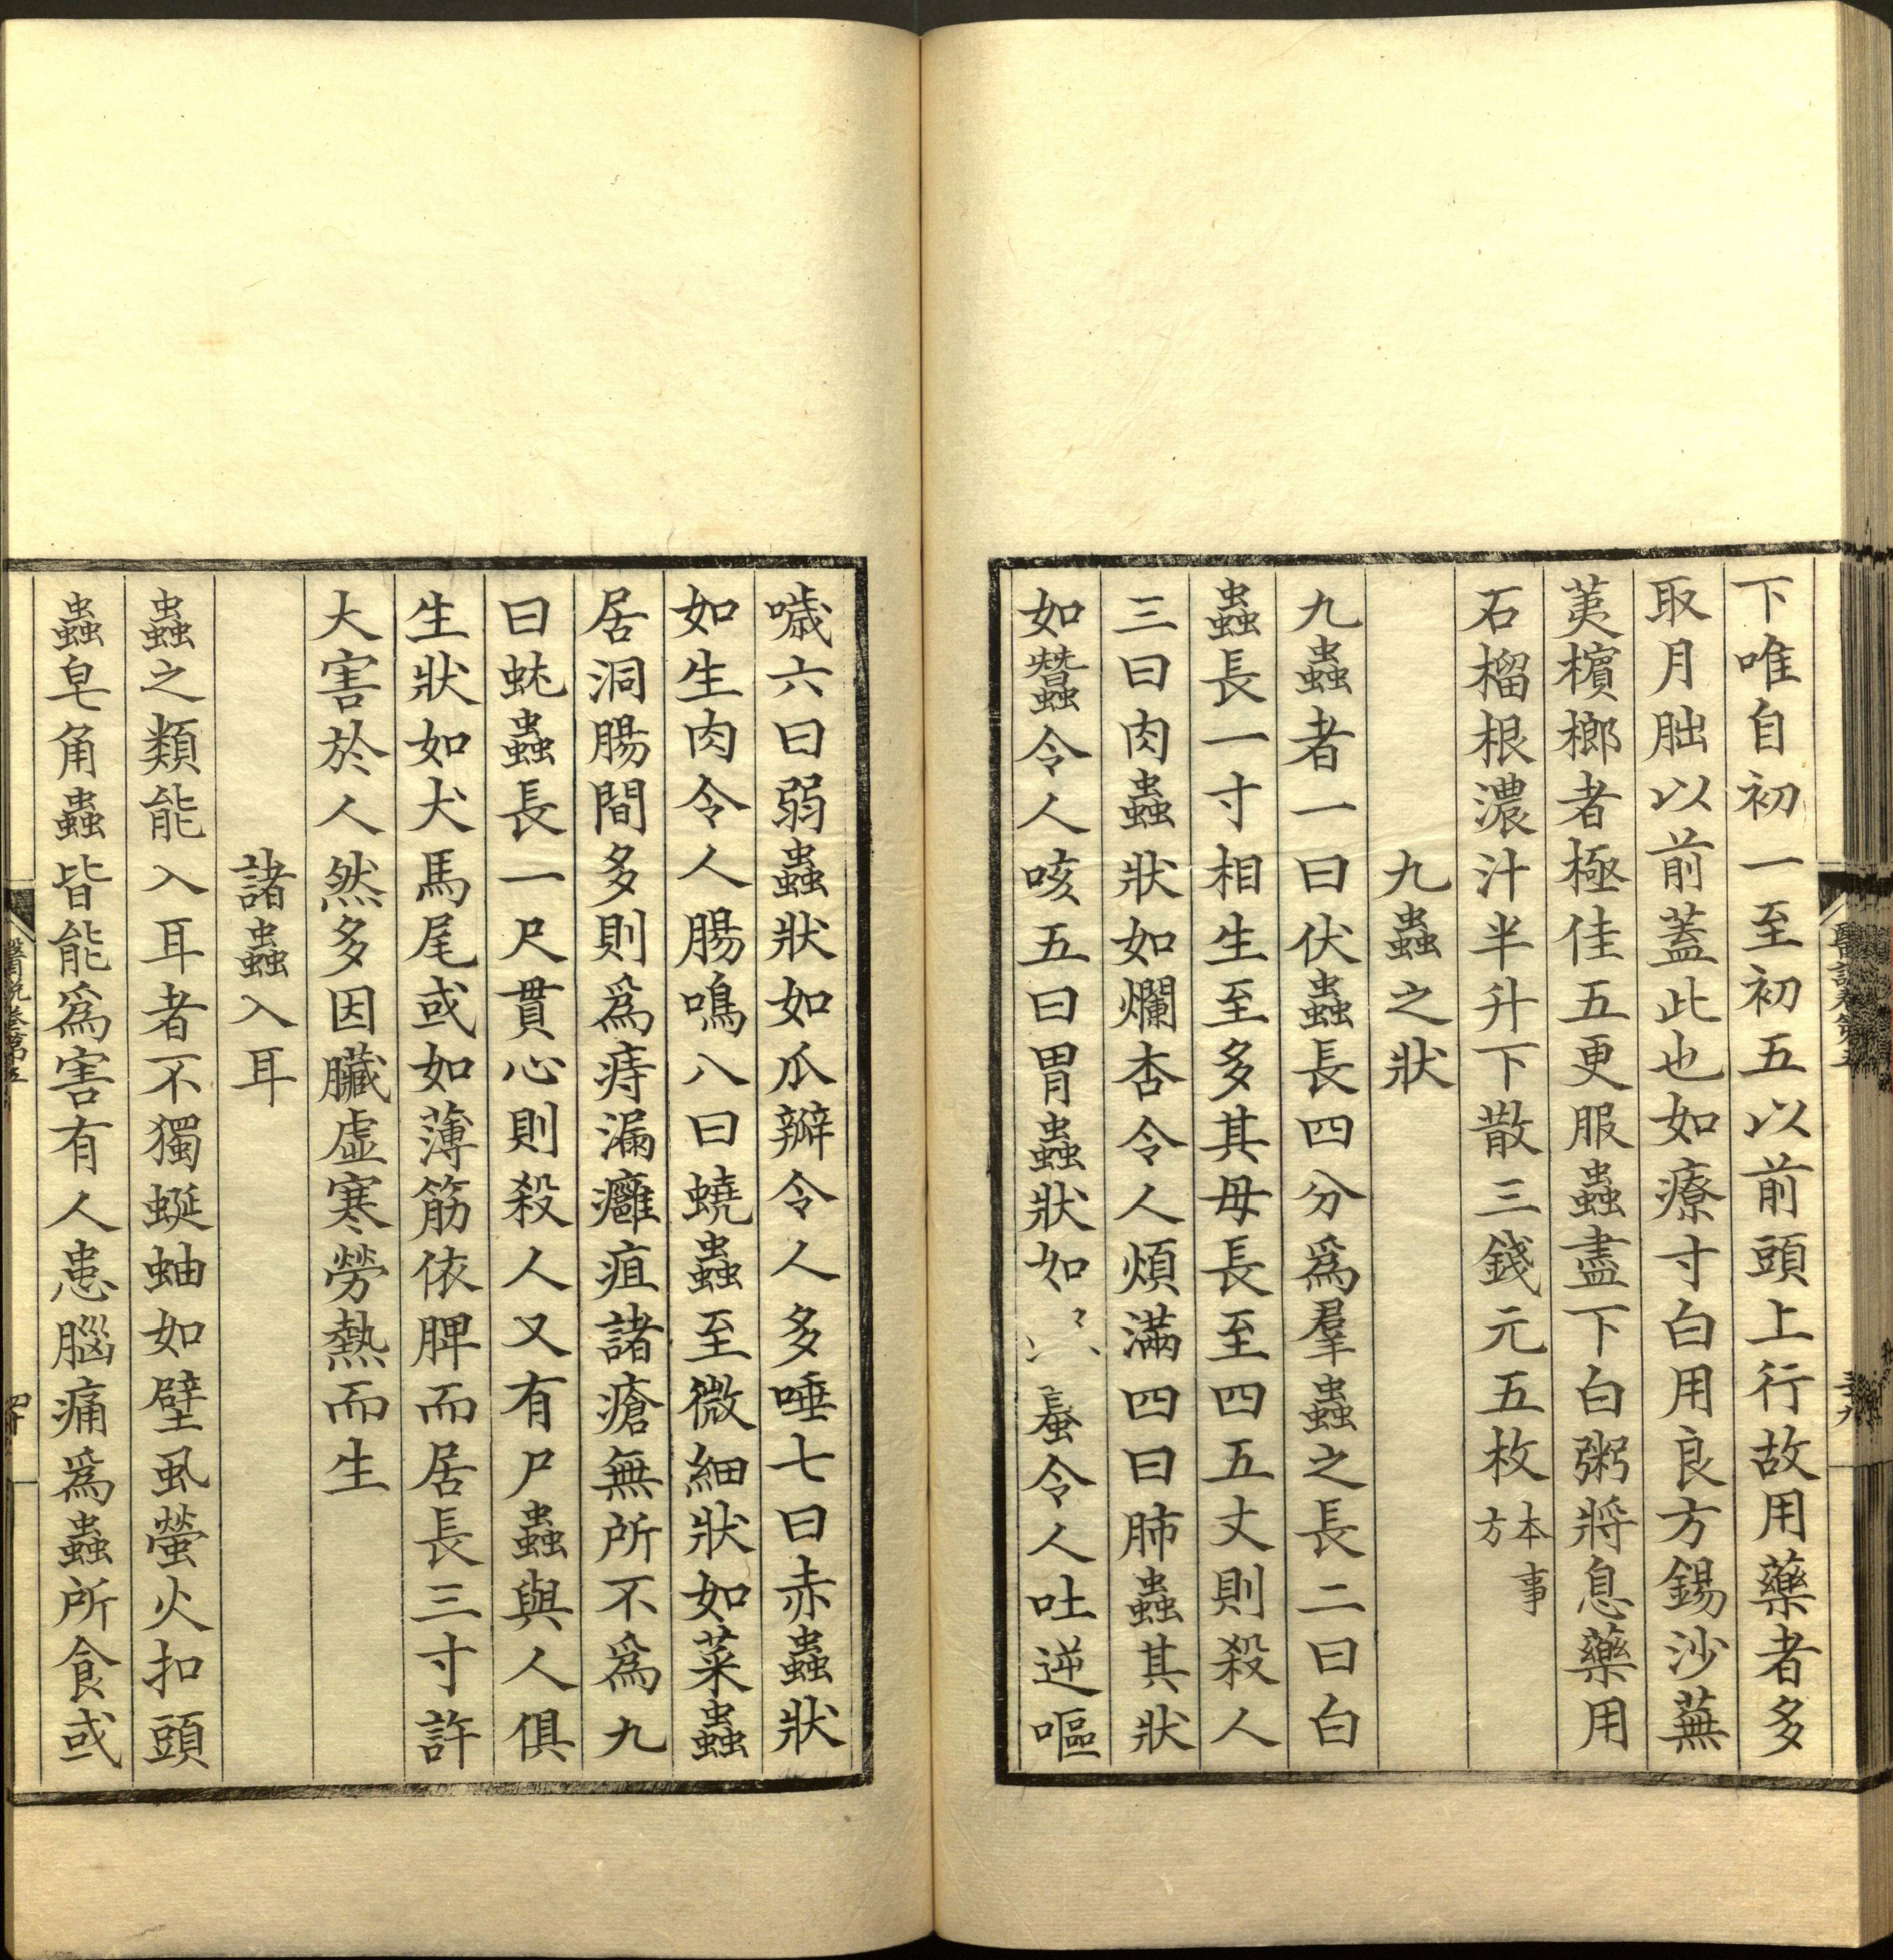 下唯自初一至初五以前頭上行故用藥者多
取月朏以前蓋此也如療寸白用良方錫沙蕪
荑檳榔者極佳五更服蟲盡下白粥將息藥用
石榴根濃汁半升下散三錢元五枚本事方
九蟲之狀
九蟲者一曰伏蟲長四分爲羣蟲之長二曰白
蟲長一寸相生至多其母長至四五丈則殺人
三曰肉蟲狀如爛杏令人煩滿四曰肺蟲其狀
如蠶令人咳五曰胃蟲狀如令人吐逆嘔
噦六曰弱蟲狀如瓜瓣令人多唾七曰赤蟲狀
如生肉令人腸鳴八曰蟯蟲至微細狀如菜蟲
居洞腸間多則爲痔漏癰疽諸瘡無所不爲九
曰蚘蟲長一尺貫心則殺人又有尸蟲與人俱
生狀如犬馬尾或如薄筋依脾而居長三寸許
大害於人然多因臟虛寒勞熱而生
諸蟲入耳
蟲之類能入耳者不獨蜒蚰如壁虱螢火扣頭
蟲皂角蟲皆能爲害有人患腦痛爲蟲所食或
醫說卷第五
四十